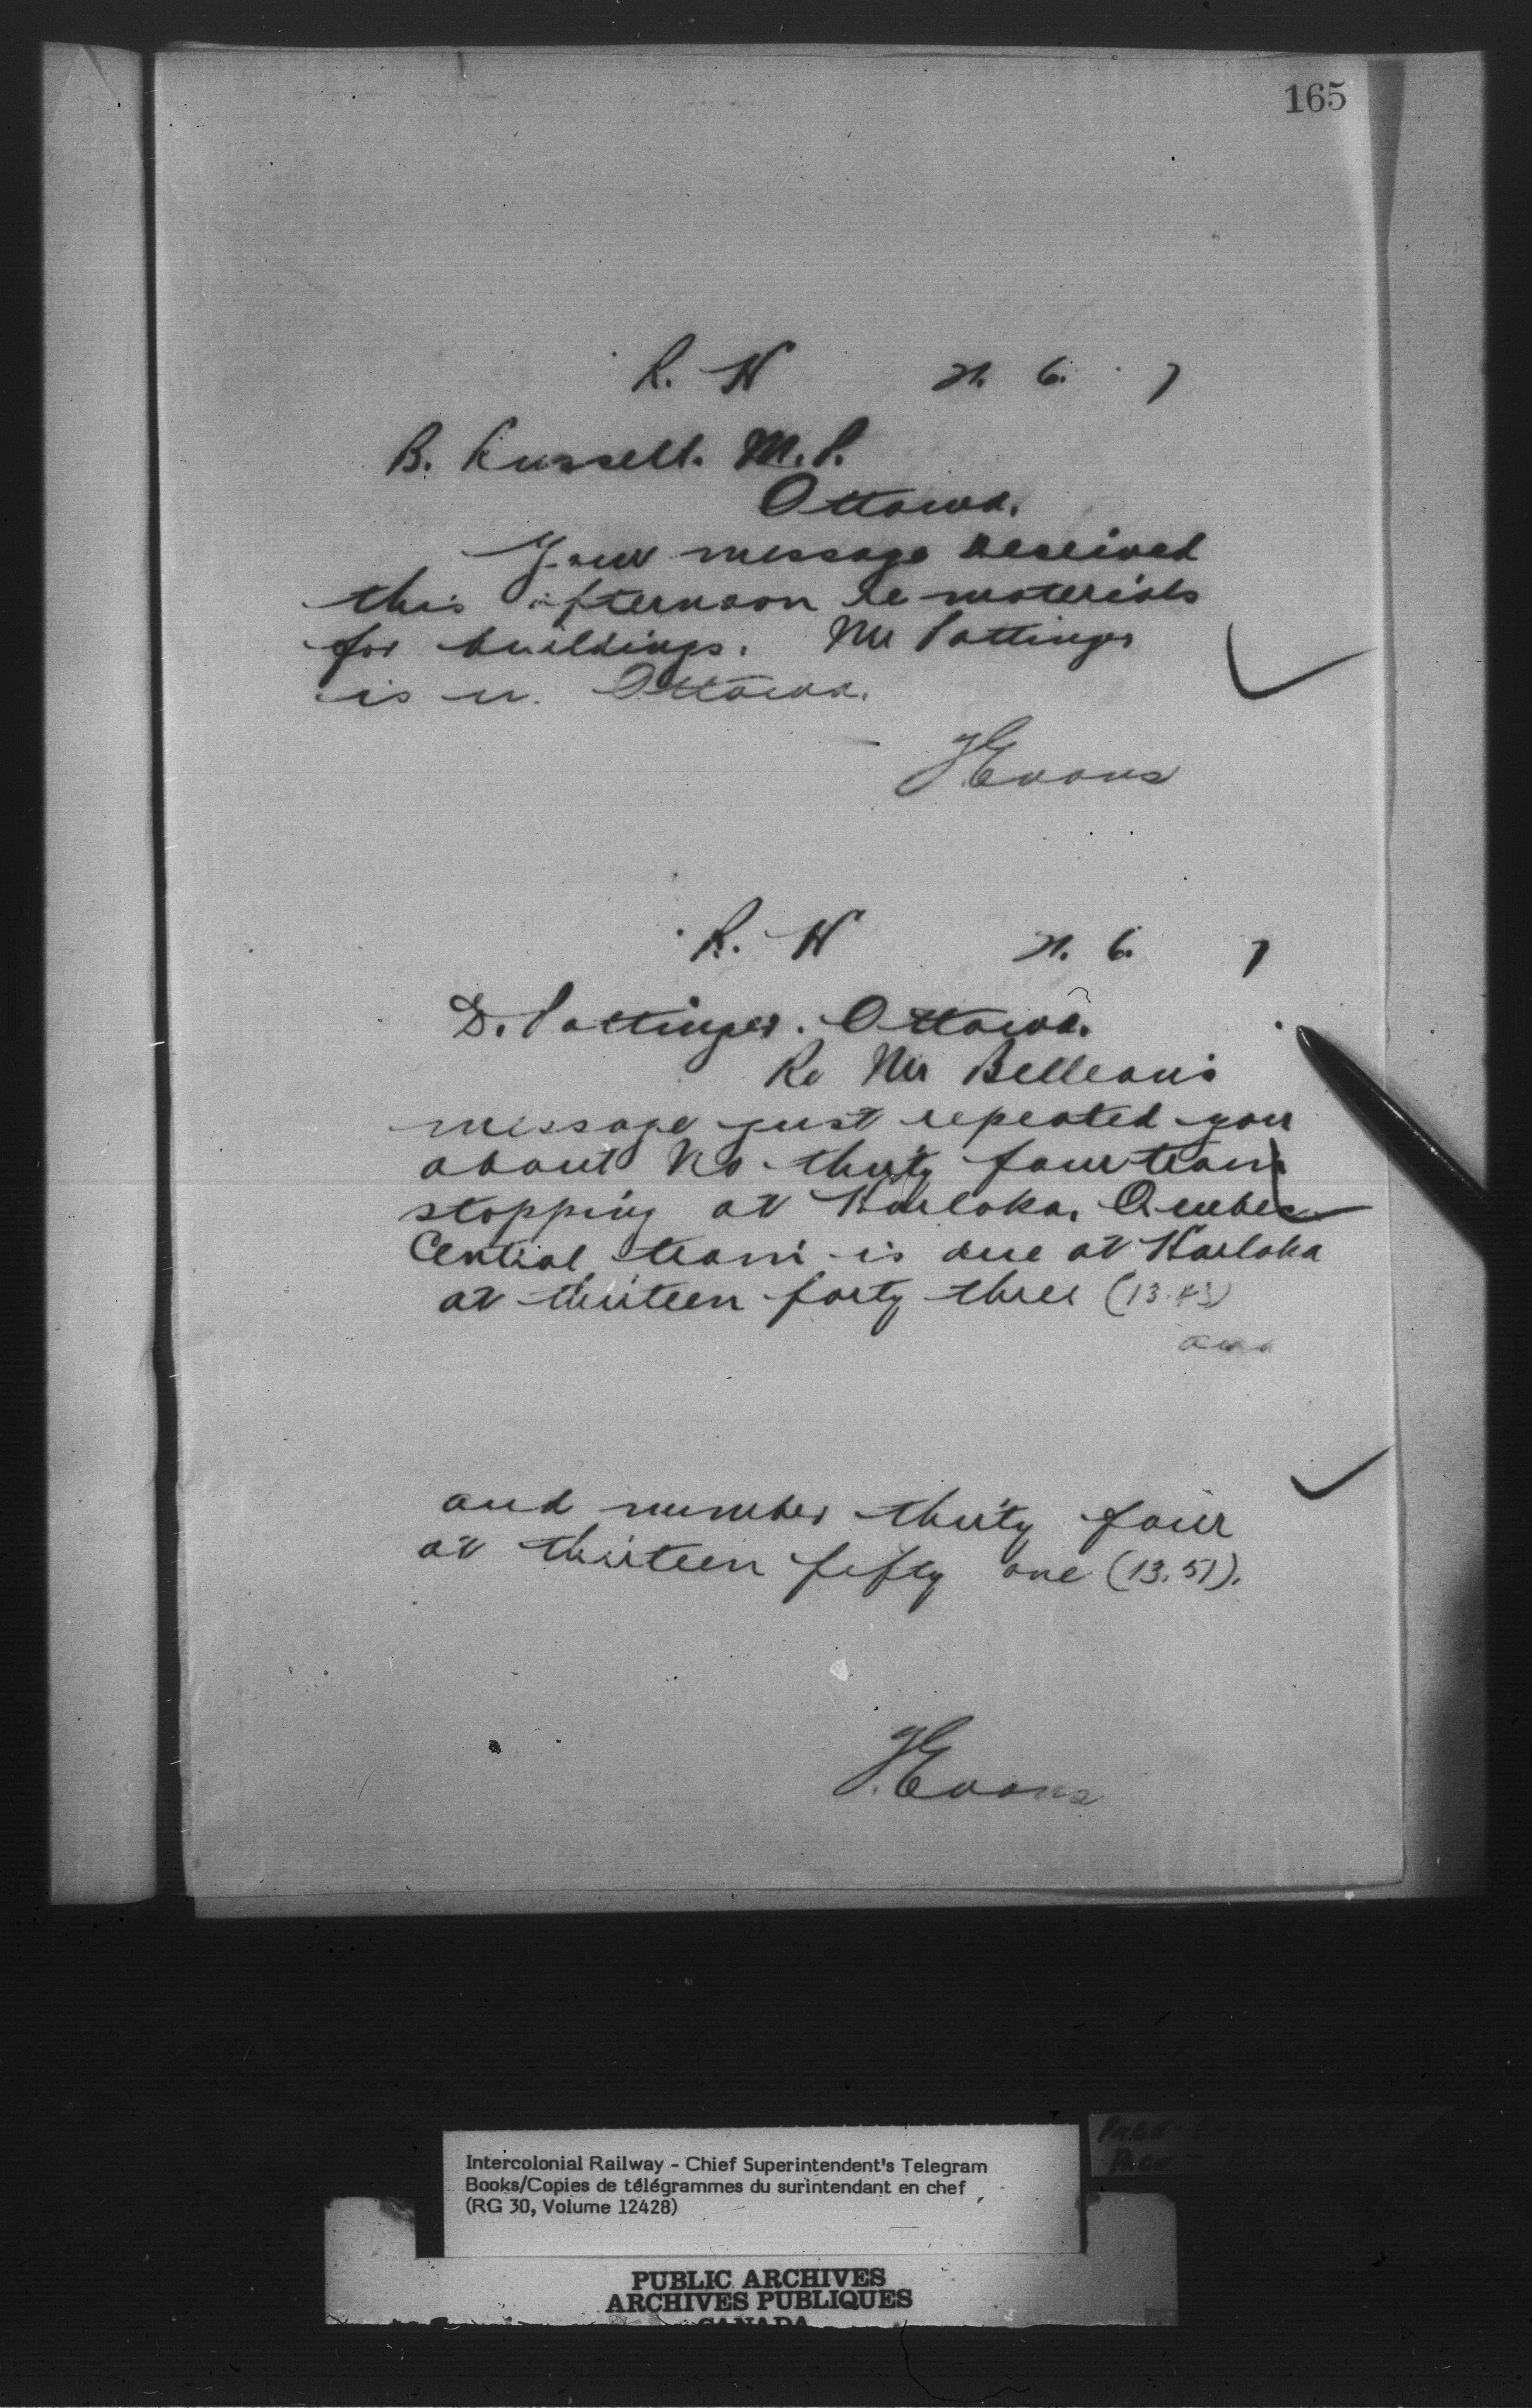 165
R. W 21. 6. 7
B. Russell. M.P.
Ottawa.
Your message received
this afternoon re materials
for buildings. Mr Pottinger
is in Ottawa.
JEvans
R. W 21. 6. 7
D. Pottinger. Ottawa.
Re Mr Belleau's
message just repeated you
about No thirty four train
stopping at Harlaka. Quebec
Central train is due at Harlaka
at thirteen forty three (13.43)
and
and number thirty four
at thirteen fifty one (13.51).
JEvans
Intercolonial Railway - Chief Superintendent's Telegram
Books/Copies de télégrammes du surintendant en chef
(RG 30, Volume 12428)
PUBLIC ARCHIVES
ARCHIVES PUBLIQUES
CANADA